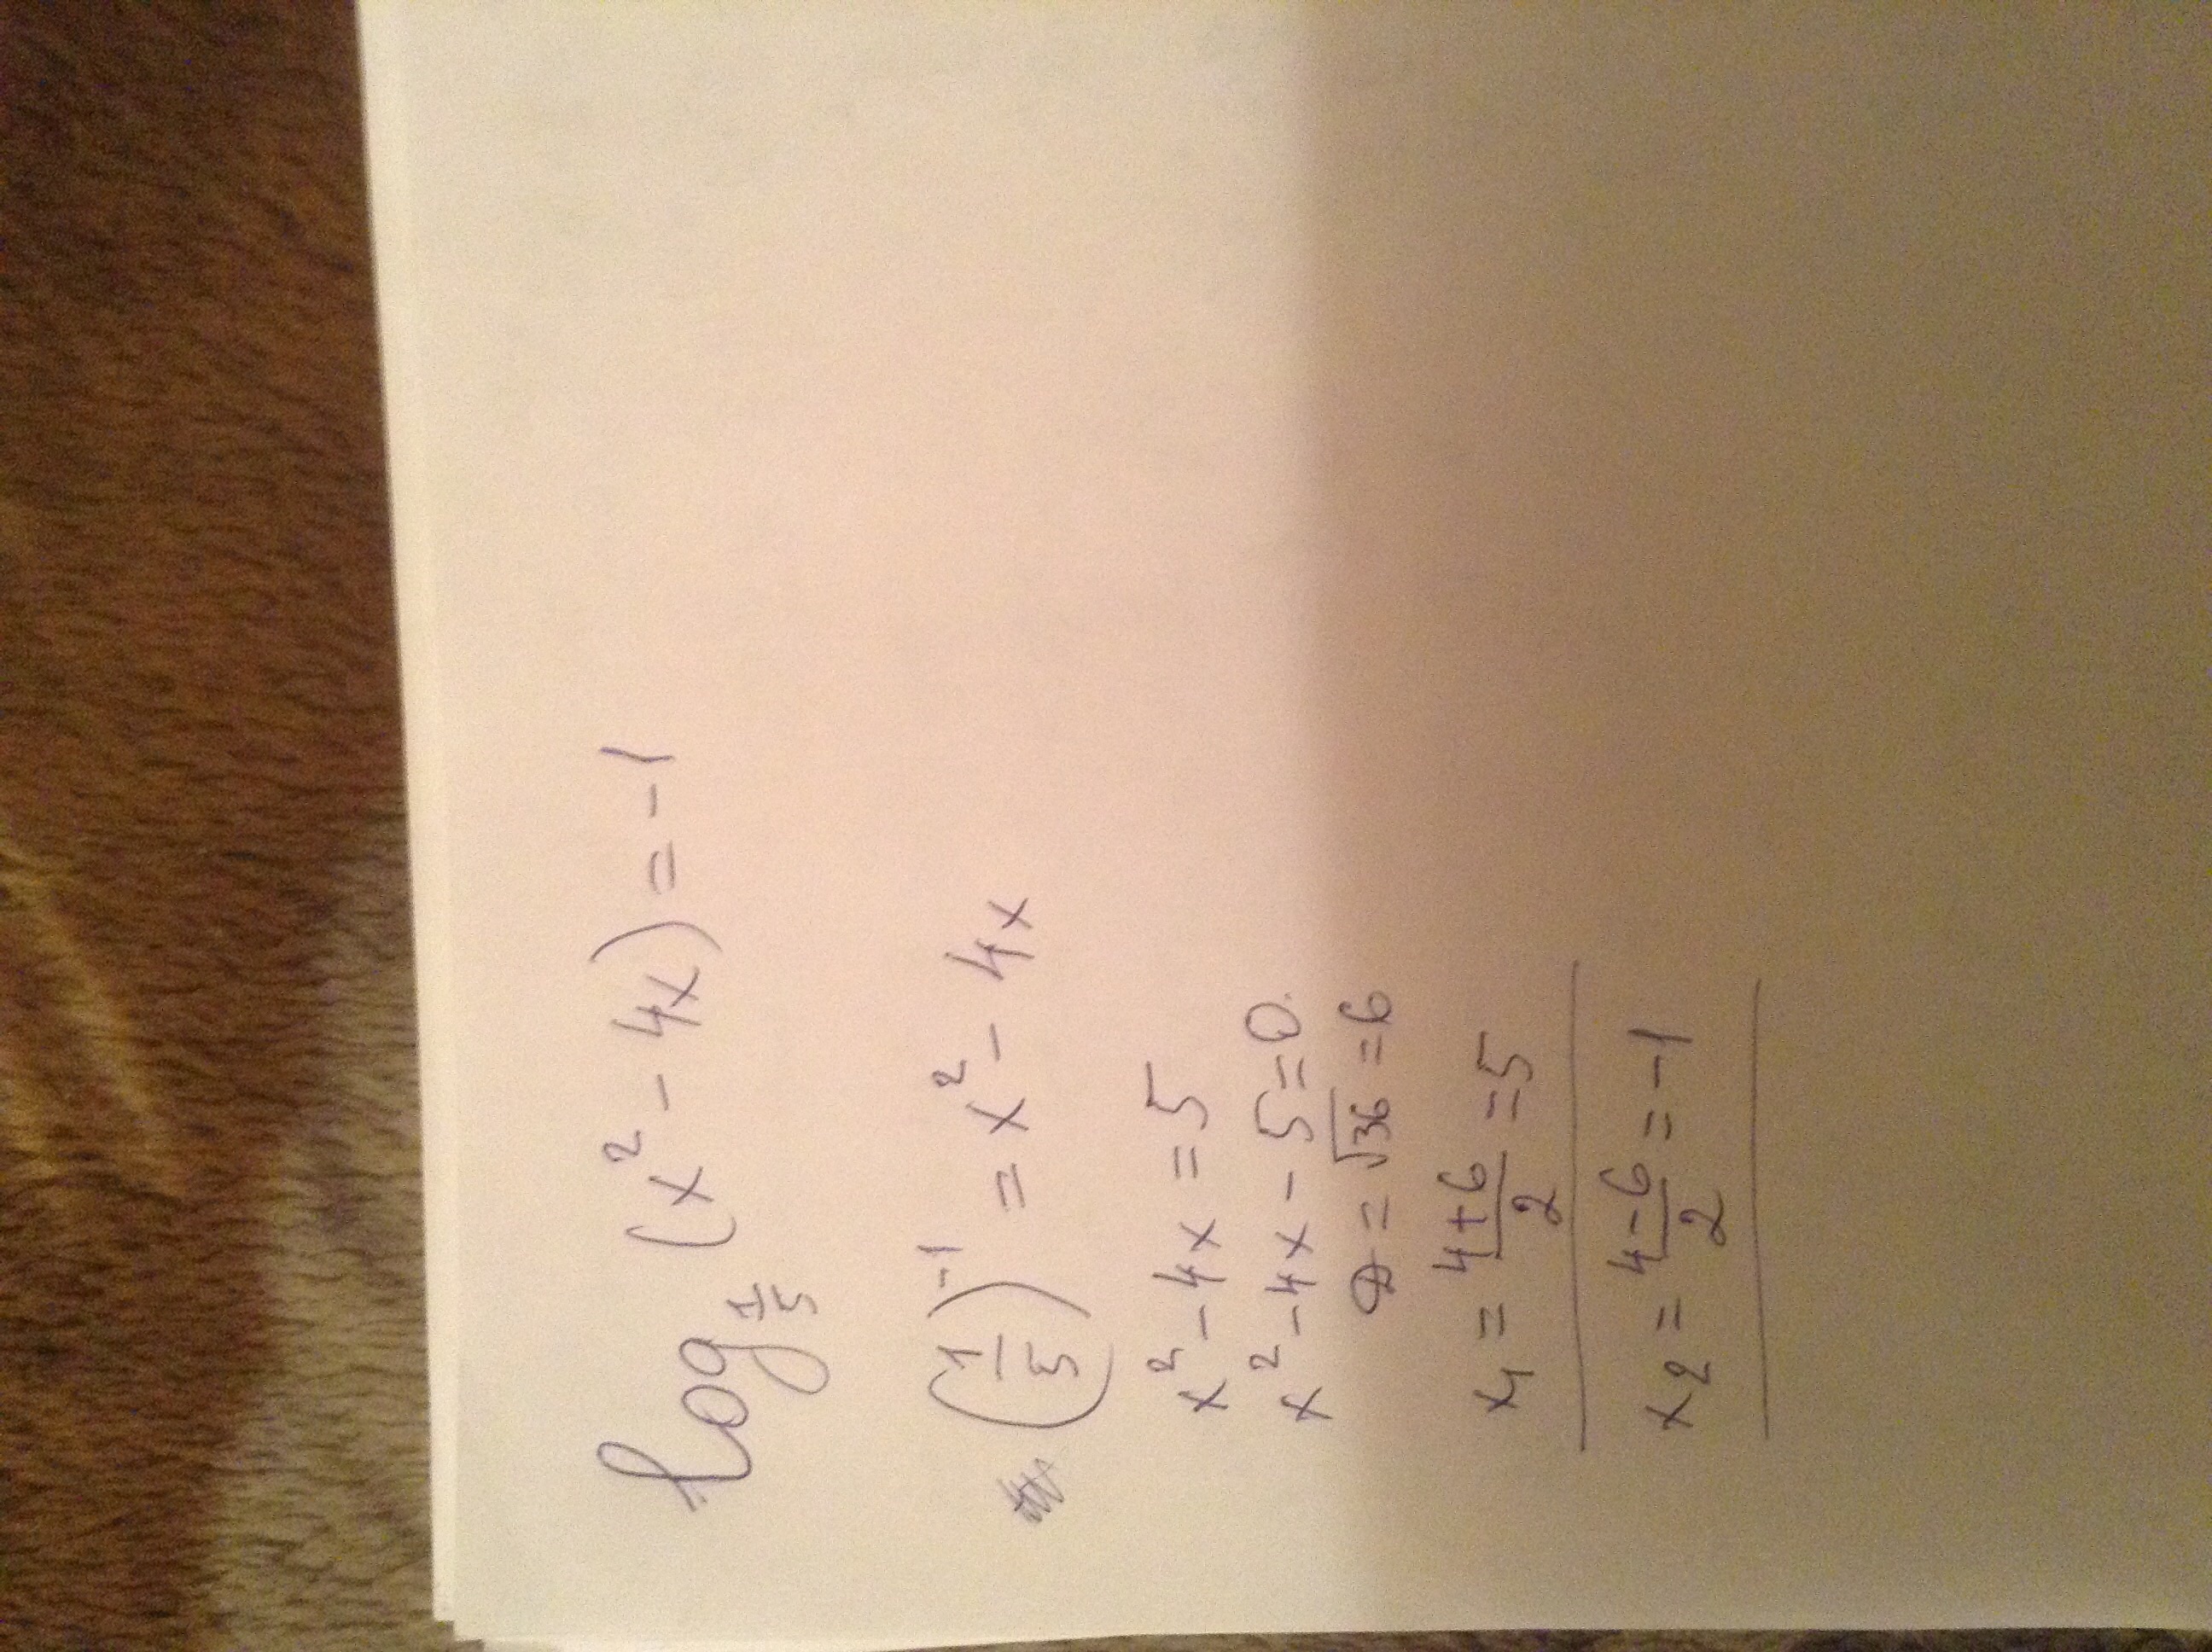 log_{1/5} (x² - 4x) = -1
(1/5)⁻¹ = x² - 4x
x² - 4x = 5
x² - 4x - 5 = 0.
D = √36 = 6
x₁ = (4+6)/2 = 5
x₂ = (4-6)/2 = -1